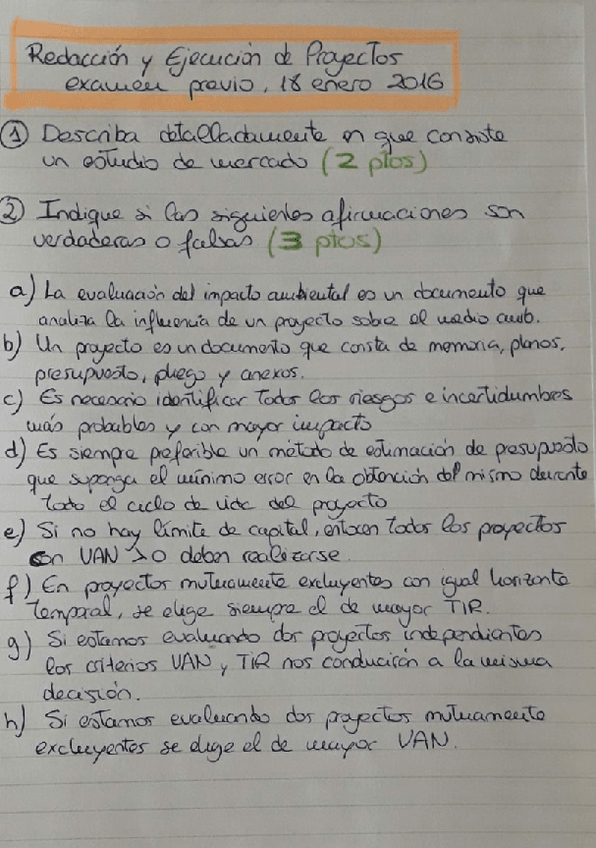 Redacción y Ejecución de Proyectos
examen previo, 18 enero 2016
① Describa detalladamente en que consiste
un estudio de mercado (2 ptos)
② Indique si las siguientes afirmaciones son
verdaderas o falsas (3 ptos)
a) La evaluación del impacto ambiental es un documento que
analiza la influencia de un proyecto sobre el medio amb.
b) Un proyecto es un documento que consta de memoria, planos,
presupuesto, pliego y anexos.
c) Es necesario identificar todos los riesgos e incertidumbres
más probables y con mayor impacto
d) Es siempre preferible un método de estimación de presupuesto
que suponga el mínimo error en la obtención del mismo durante
todo el ciclo de vida del proyecto
e) Si no hay límite de capital, entocen todos los proyectos
con VAN >0 deben realizarse
f) En proyectos mutuamente excluyentes con igual horizonte
temporal, se elige siempre el de mayor TIR.
g) Si estamos evaluando dos proyectos independientes
los criterios VAN y TIR nos conducirán a la misma
decisión.
h) Si estamos evaluando dos proyectos mutuamente
excluyentes se elige el de mayor VAN.